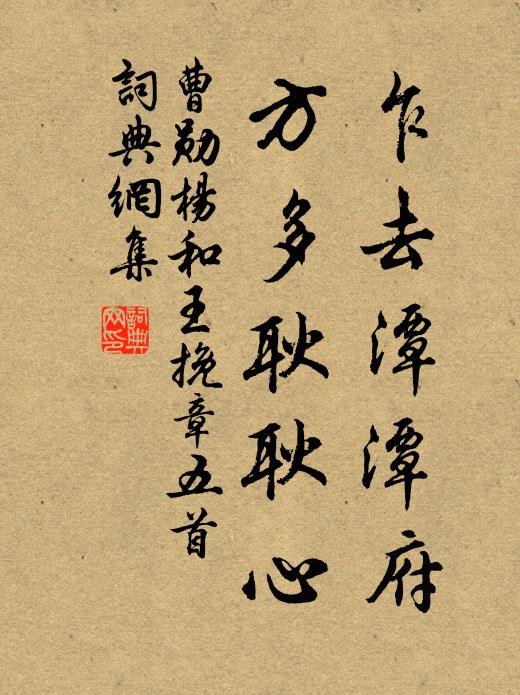 乍去潭潭府
方多耿耿心
曹勋楊和王挽章五首
詞典網集
詞典网印